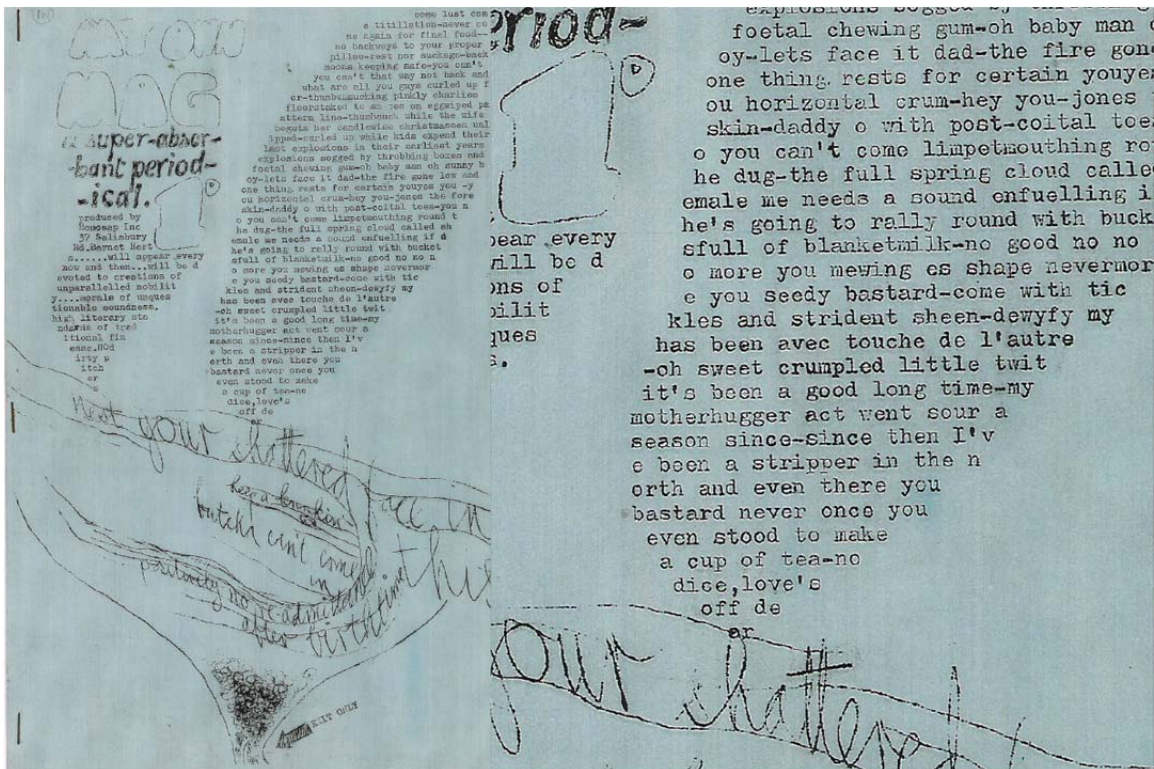 MY OWN
MAG
a super-absor-
-bant period-
-ical.
produced by
Homosap Inc
37 Salisbury
Rd.Barnet Hert
s......will appear every
now and then...will be d
evoted to creations of
unparallelled nobilit
y....morals of unques
tionable soundness.
high literary sta
ndards of trad
itional fin
esse.NOd
irty p
itch
er
s
come lust com
e titillation-never co
me again for final food--
no backways to your proper
pillow-rest nor suckage-back
moons keeping safe-you can't
you can't that way not back and
what are all you guys curled up f
or-thumbunsucking pinkly charlies
floorstaked to an res on eggwiped pa
attern lino-thumbsuck while the wife
begets her candlewise christmasses unl
ipped-curled up while kids expend their
last explosions in their earliest years
explosions sogged by throbbing boxes and
foetal chewing gum-oh baby man oh sunny b
oy-lets face it dad-the fire gone low and
one thing rests for certain youyes you -y
ou horizontal crum-hey you-jones the fore
skin-daddy o with post-coital toes-you n
o you can't come limpetmouthing round t
he dug-the full spring cloud called sh
emale me needs a sound onfuelling if d
he's going to rally round with bucket
sfull of blanketmilk-no good no no n
o more you mewing es shape nevermor
e you seedy bastard-come with tic
kles and strident sheen-dewyfy my
has been avec touche de l'autre
-oh sweet crumpled little twit
it's been a good long time-my
motherhugger act went sour a
season since-since then I'v
e been a stripper in the n
orth and even there you
bastard never once you
even stood to make
a cup of tea-no
dice,love's
off de
ar
next your shattered face in
butch can't come
in
this
positively no re-admittance
after birthtime!
EXIT ONLY
eriod-
pear every
will be d
ons of
bilit
ques
s.
explosions sogged by throbbing
foetal chewing gum-oh baby man o
oy-lets face it dad-the fire gon
one thing rests for certain youye
ou horizontal crum-hey you-jones
skin-daddy o with post-coital toe
o you can't come limpetmouthing ro
he dug-the full spring cloud calle
emale me needs a sound onfuelling i
he's going to rally round with buck
sfull of blanketmilk-no good no no
o more you mewing es shape nevermor
e you seedy bastard-come with tic
kles and strident sheen-dewyfy my
has been avec touche de l'autre
-oh sweet crumpled little twit
it's been a good long time-my
motherhugger act went sour a
season since-since then I'v
e been a stripper in the n
orth and even there you
bastard never once you
even stood to make
a cup of tea-no
dice,love's
off de
ar
your shattered